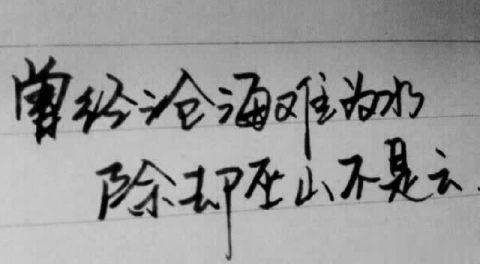 曾经沧海难为水
除却巫山不是云.